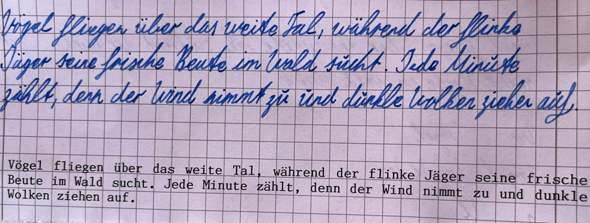 Vögel fliegen über das weite Tal, während der flinke
Jäger seine frische Beute im Wald sucht. Jede Minute
zählt, denn der Wind nimmt zu und dunkle Wolken ziehen auf.
Vögel fliegen über das weite Tal, während der flinke Jäger seine frische
Beute im Wald sucht. Jede Minute zählt, denn der Wind nimmt zu und dunkle
Wolken ziehen auf.